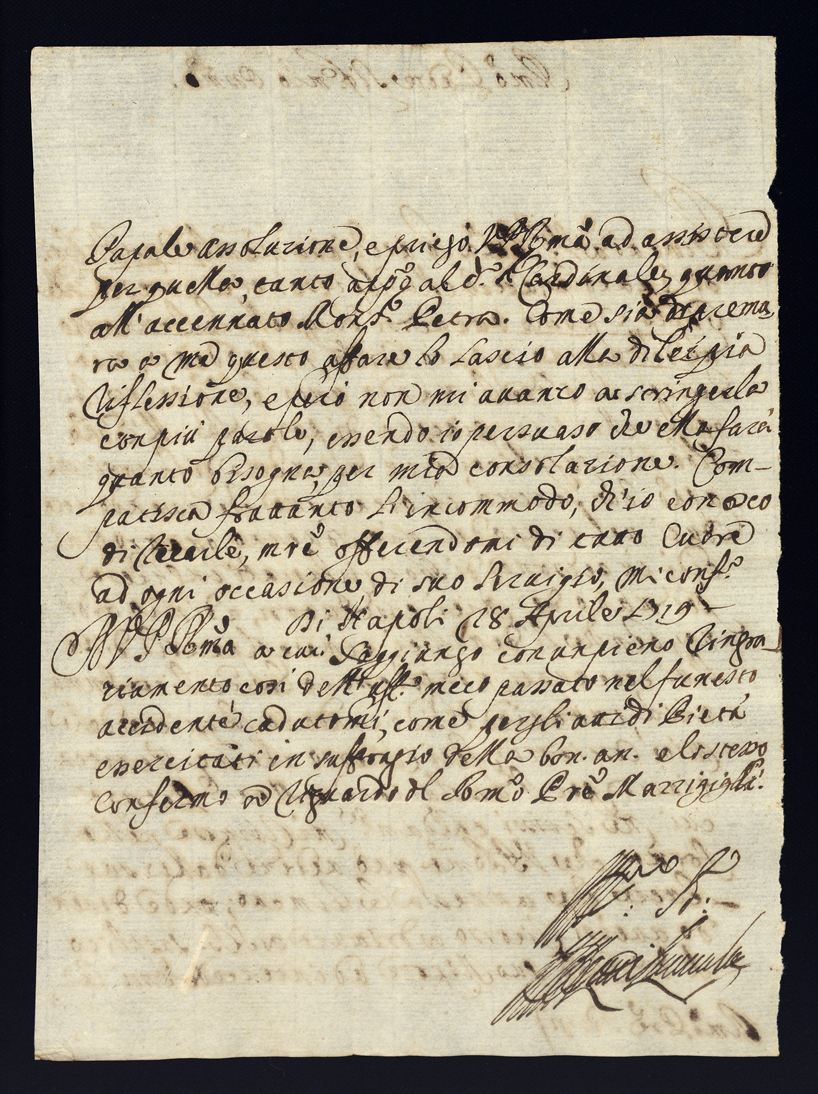 Papale assoluzione, e priego V. P. Rma ad assistere
per quella, tanto apõ al d.º Cardinale, quanto
all'accennato Mons.r Petra. Come sia di prema
ra a me questo affare lo lascio alla di lei pia
riflessione, e però non mi avanzo a stringerla
con più parole, essendo io persuaso che ella farà
quanto bisogna, per mia consolazione. Com-
patisca frattanto l'incommodo, ch'io conosco
di recarle, mre offerendomi di tutto cuore
ad ogni occasione, di suo servigio, mi conf.º
Di Napoli 18 Aprile 1719
V. P. Rma a cui soggiungo con un pieno ringra-
ziamento così dell' uff.º meco passato nel funesto
accidente cadutomi, come per gli atti di Pietà
esercitati in suffragio della bon. an. e lo stesso
confermo a riguardo del Rmo Pre Marrigigli.